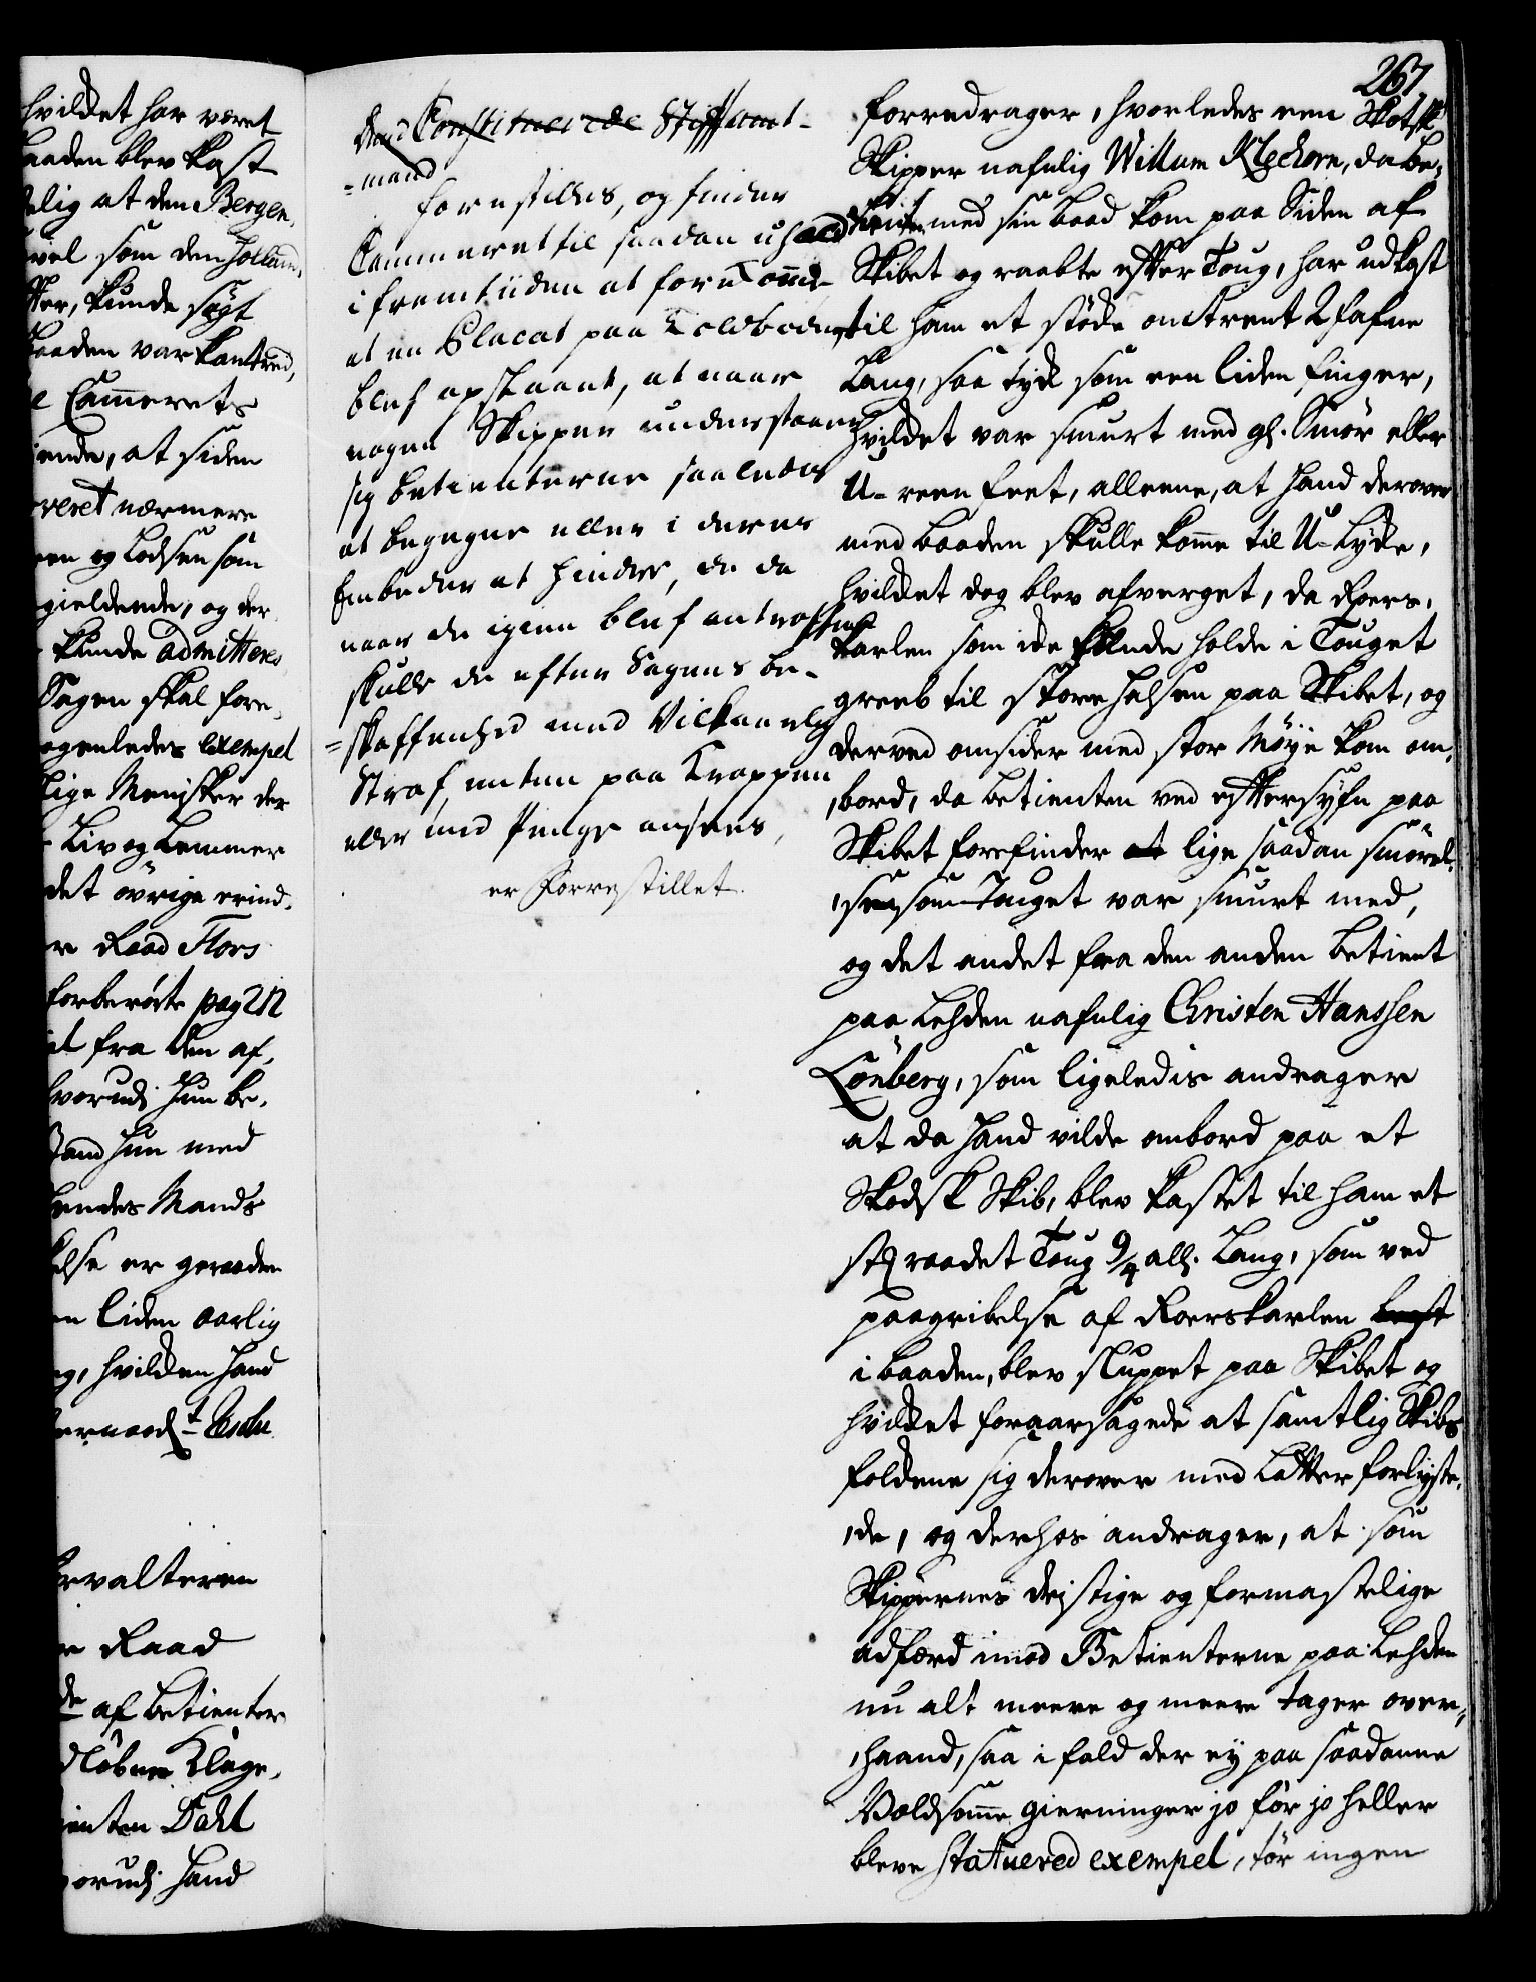 hvilket har været
baaden blev kast
elig at den Bergen
vel som den Holland
kunde sagt
baaden var kantred,
Cammerets
ende, at siden
veret nærmere
og Lodsen som
gieldende, og der
kunde admitteres
Sagen skal fore
ogenledes exempel
lige Menisker der
Liv og Lemmer
det øvrige erind
Raad Flors
forberørte pag 212
fra den af
hvorudj hun be
hun med
hendes Mands
else er geraaden
liden aarlig
hvilken hand
ervalteren
Raad
af betienter
Klage
Dahl
hvorudj hand
267
Constituerede Stiftamt-
=mand
forestilles, og finder
Cammeret til saadan
i fremtiiden at forekomme
at en Placat paa Toldboden
blef opslaaet, at naar
nogen Skipper understaar
sig betienterne saaledes
at begegne eller i deres
Embeder at hindre, de da
naar de igien blef antroffen
skulle de efter Sagens be-
=skaffenhed med Vilkaarlig
Straf enten paa Kroppen
eller med Penge ansees,
er Forrestillet.
forredrager, hvorledes een Skotsk
Skipper nafnlig Willum Kleckorn, da be,
med sin baad kom paa Siden af
Skibet og raabte efter Toug, har udkast
til ham et støcke omtrent 2 fafne
Lang, saa tyck som een liden finger,
hvilket var smurt med gl. Smør eller
U-reen feet, alleene, at hand derover
med baaden skulle komme til U-Lycke,
hvilket dog blev afverget, da Roers,
karlen som icke kunde holde i Touget
greeb til store halsen paa Skibet, og
derved omsider med stor Møye kom om,
,bord, da betienten ved eftersyfn paa
Skibet forefinder lige saadan smørel,
,sen som Touget var smurt med,
og det andet fra den anden betient
paa Lehden nafnlig Christen Hanssen
Lønberg, som ligeledis andrager
at da hand vilde ombord paa et
Skodsk Skib, blev kastet til ham et
raadet Toug 9/4 all. Lang, som ved
paagribelse af Roerskarlen
i baaden, blev sluppet paa Skibet og
hvilket foraarsagede at samtlig Skibs
folckene sig derover med Latter forlyste,
,de, og derhos andrager, at som
Skippernes dristige og formastelige
adfærd imod Betienterne paa Lehden
nu alt meere og meere tager over,
,haand, saa i fald der ey paa saadanne
Voldsomme gierninger jo før jo heller
bleve statuered exempel, tør ingen